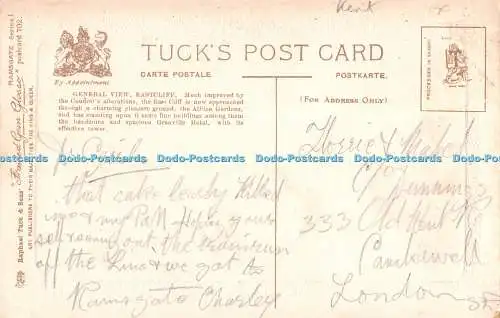 Kent
TUCK'S POST CARD
CARTE POSTALE. POSTKARTE.
By Appointment
GENERAL VIEW, EASTCLIFF. Much improved by
the Council's alterations, the East Cliff is now approached
through a charming pleasure ground, the Albion Gardens,
and has standing upon it some fine buildings among them
the bandstand and spacious Granville Hotel, with its
effective tower.
(FOR ADDRESS ONLY)
RAMSGATE Series I
postcard 7O2.
Raphael Tuck & Sons'
ART PUBLISHERS TO THEIR MAJESTIES THE KING & QUEEN.
PROCESSED IN SAXONY
that cake nearly killed
me & my Pal Hoping your
still running out the train run
off the Line & we got to
Ramsgate Charley
Florrie & Mabel
C/o
333 Old Kent Rd
Camberwell
London S.E.
Dodo-Postcards Dodo-Postcards Dodo-Postcards Dodo-Postcards Dodo-Postcards Dodo-Postcards